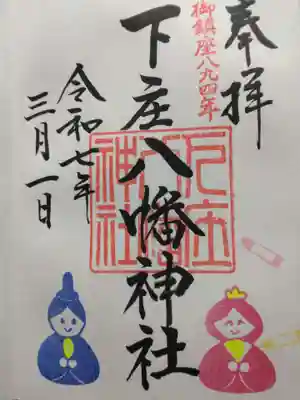 奉拝
御鎮座八九四年
下庄八幡神社
令和七年
三月一日
下庄八幡神社